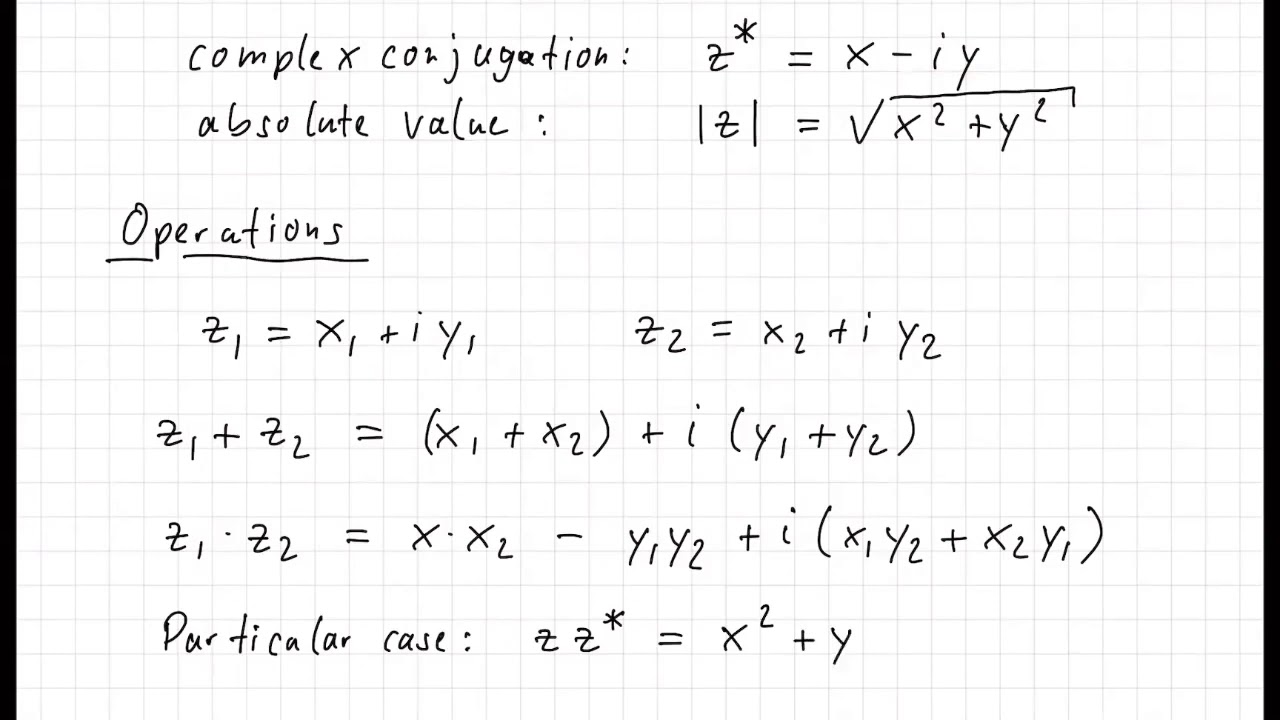 complex conjugation: z* = x - iy
absolute value: |z| = √(x² + y²)
Operations
z₁ = x₁ + i y₁ z₂ = x₂ + i y₂
z₁ + z₂ = (x₁ + x₂) + i (y₁ + y₂)
z₁ · z₂ = x · x₂ - y₁y₂ + i (x₁y₂ + x₂y₁)
Particular case: z z* = x² + y